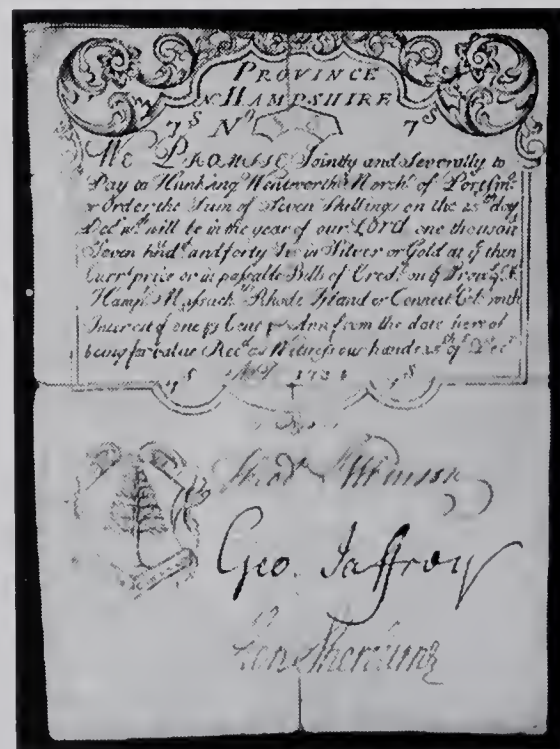 PROVINCE
N HAMPSHIRE
7S No 7S
We PROMISE Jointly and Severally to
Pay to Hunking Wentworth Mercht of Portsmo
or Order the Sum of Seven Shillings on the 25th day
Decr wch will be in the year of our LORD one thousan
Seven hndd and forty in Silver or Gold at ye then
Currt price or in passable Bills of Credt on ye Provce of N
Hampr Massachts Rhode Island or Connectt Col with
Interest of one pr Cent pr Ann from the date hereof
being for value Recd as Witness our hands 25th of Decr
7S 1734 7S
Geo. Jaffrey